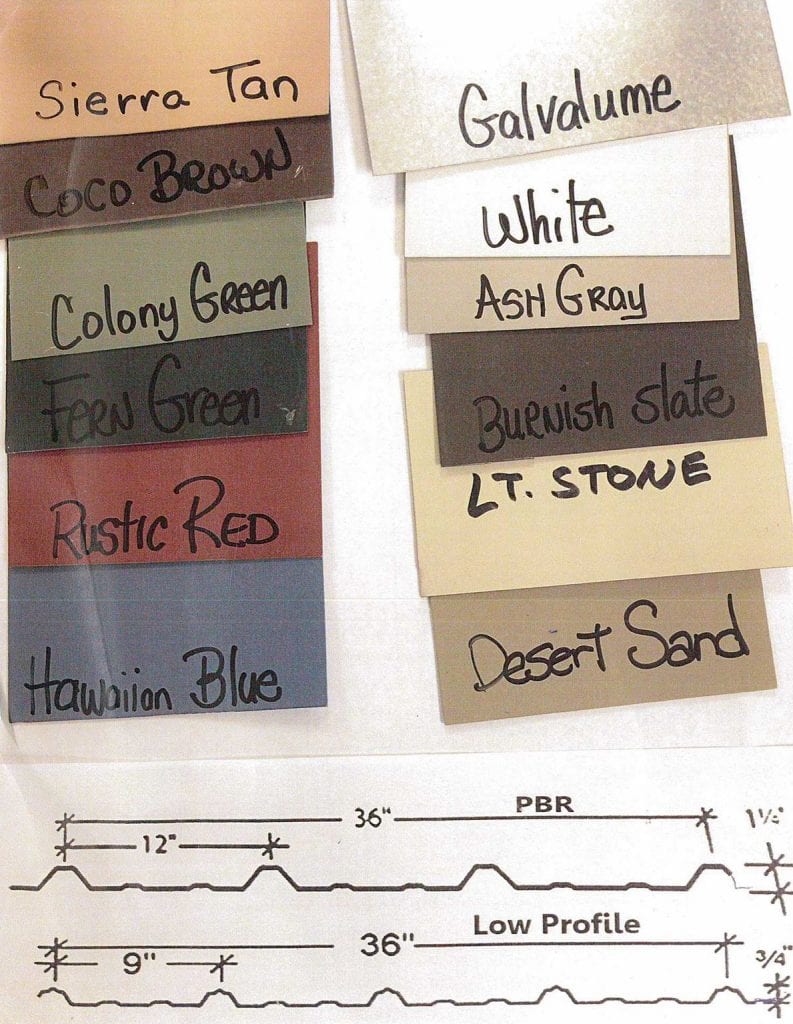 Sierra Tan
Coco Brown
Colony Green
Fern Green
Rustic Red
Hawaiian Blue
Galvalume
White
Ash Gray
Burnish Slate
LT. STONE
Desert Sand
36" PBR
12"
Low Profile
36"
9"
3/4"